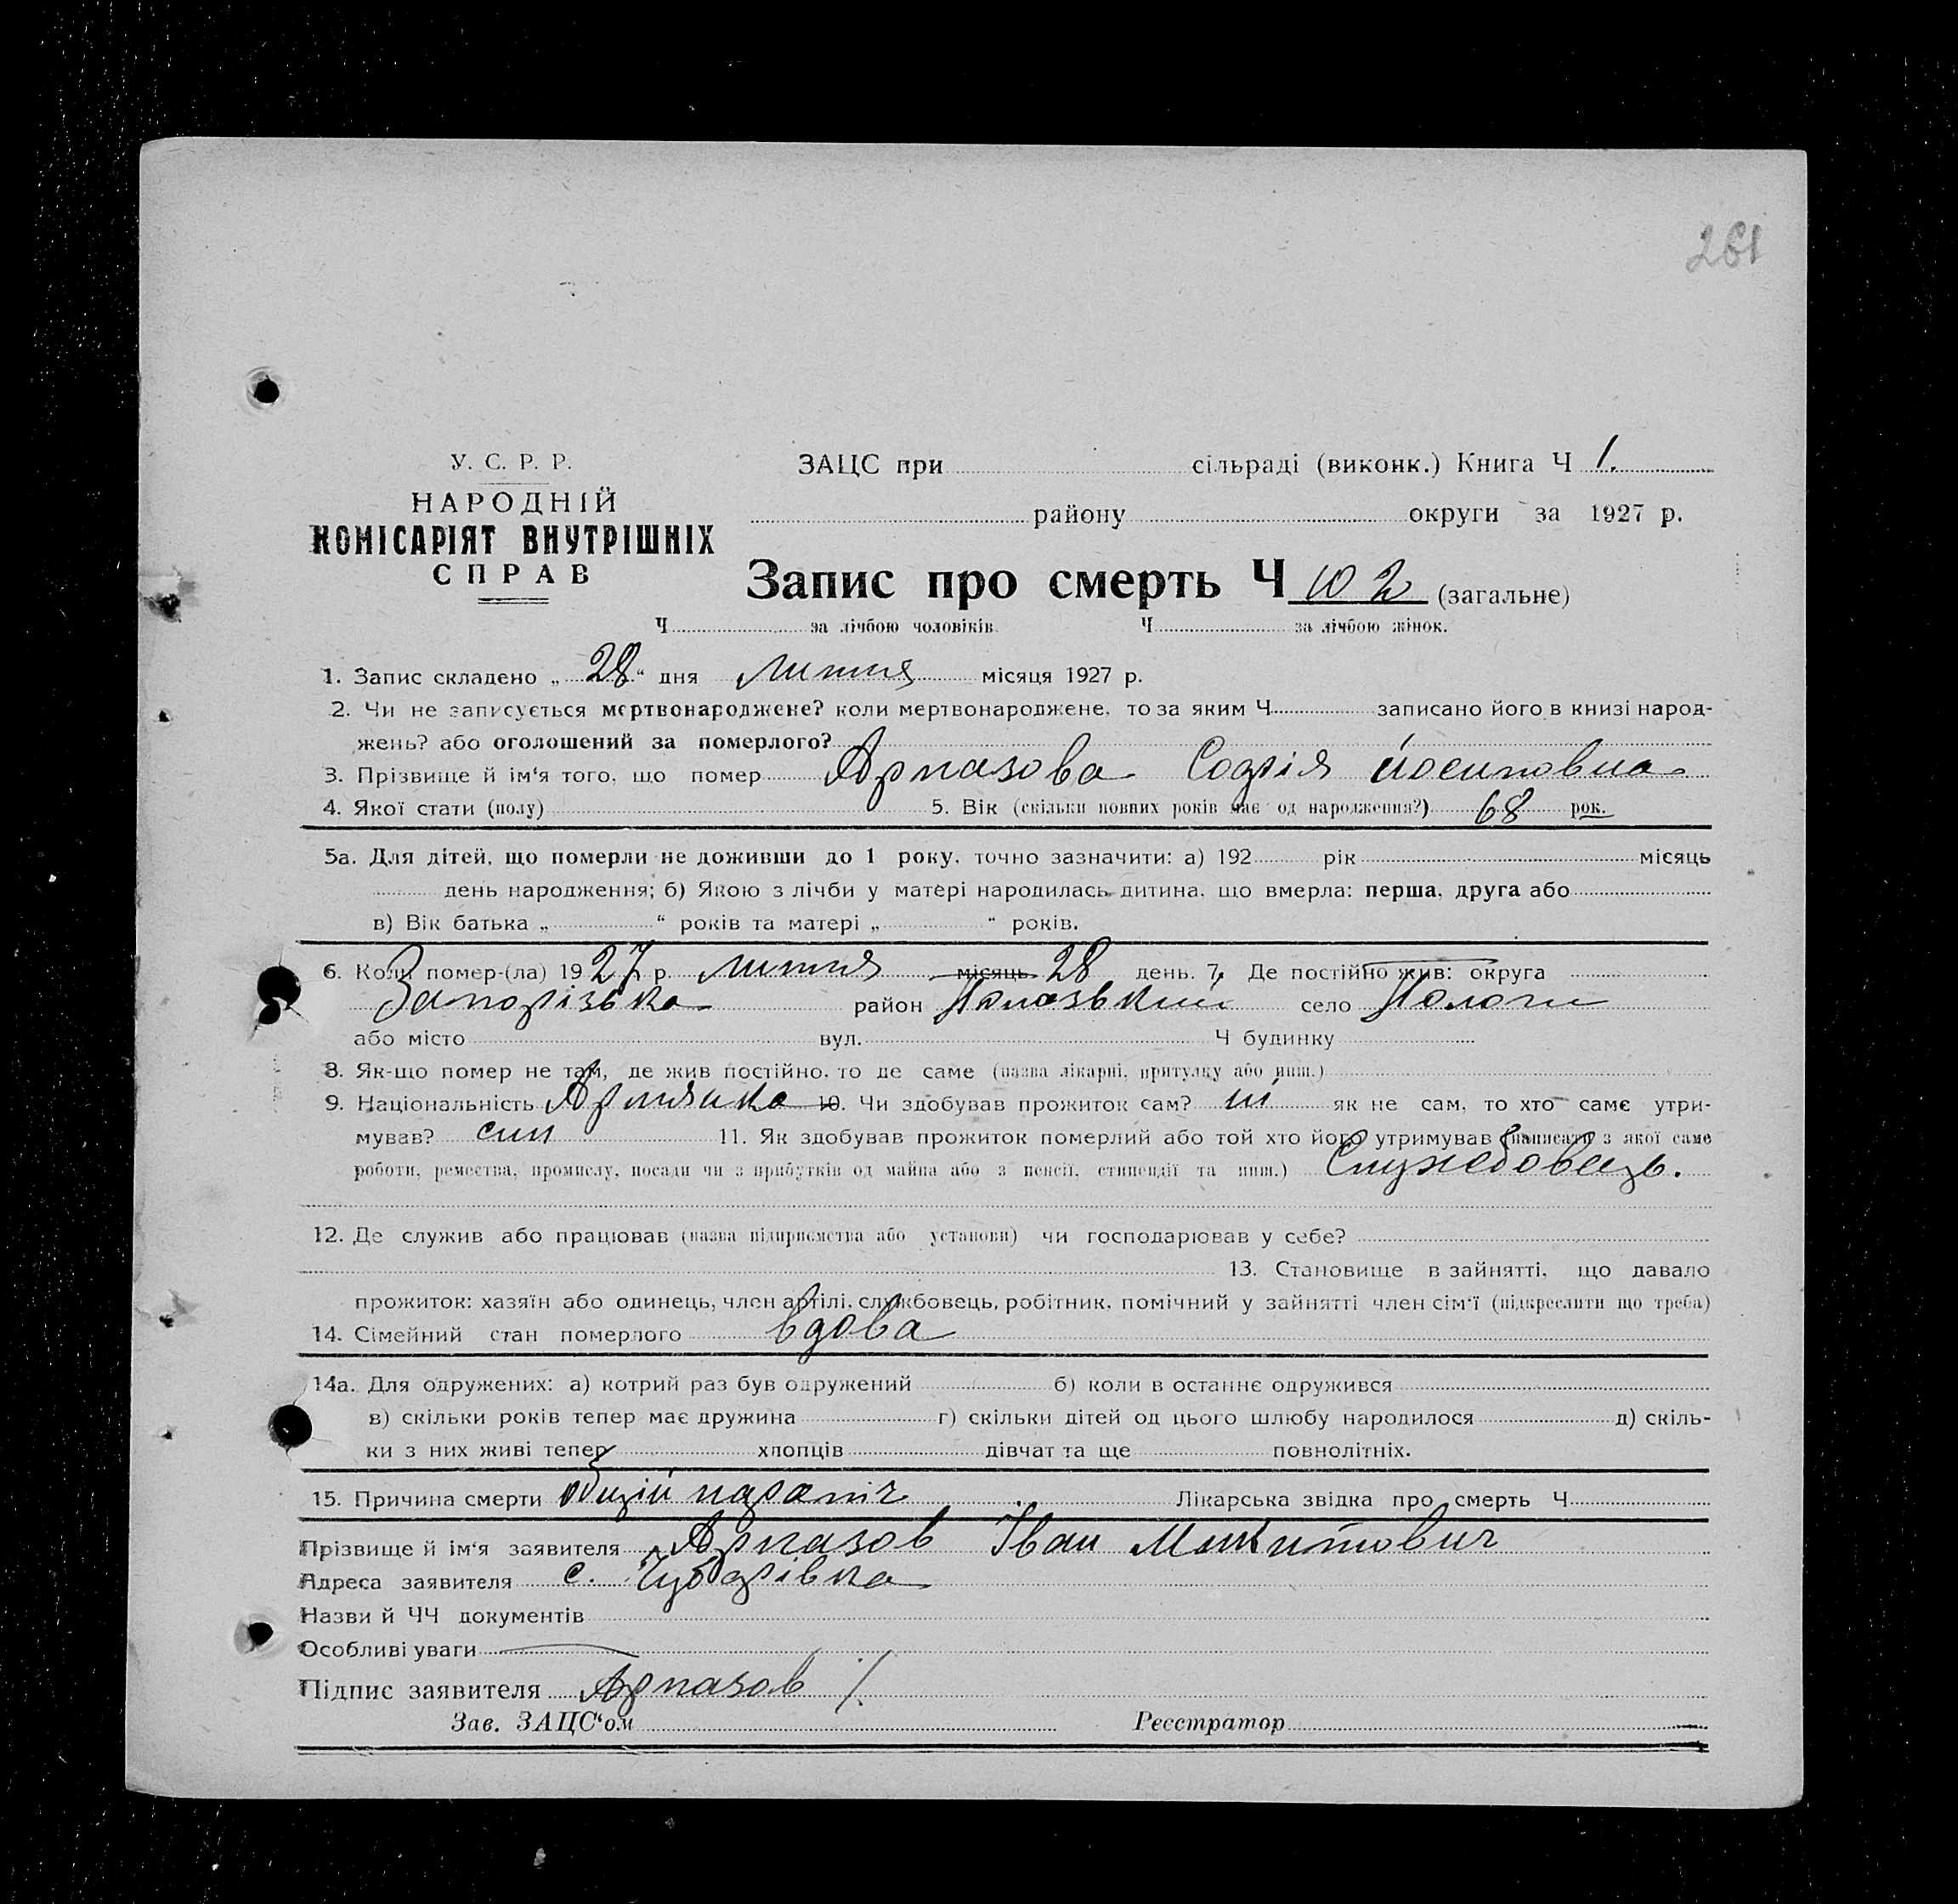 261
У. С. Р. Р.
НАРОДНІЙ
КОМІСАРІЯТ ВНУТРІШНІХ
СПРАВ
ЗАЦС при сільраді (виконк.) Книга Ч 1.
району округи за 1927 р.
Запис про смерть Ч 102 (загальне)
Ч за лічбою чоловіків. Ч за лічбою жінок.
1. Запис складено „ 28 “ дня липня місяця 1927 р.
2. Чи не записується мертвонароджене? коли мертвонароджене, то за яким Ч записано його в книзі народ-
жень? або оголошений за померлого?
3. Прізвище й ім‘я того, що помер Арпазова Софія Йосиповна
4. Якої стати (полу) 5. Вік (скільки повних років має од народження?) 68 рок.
5а. Для дітей, що померли не доживши до 1 року, точно зазначити: а) 192 рік місяць
день народження; б) Якою з лічби у матері народилась дитина, що вмерла: перша, друга або
в) Вік батька „ “ років та матері „ “ років.
6. Коли помер-(ла) 1927 р. липня місяць 28 день. 7. Де постійно жив: округа
Запорізька район село Пологи
або місто вул. Ч будинку
8. Як-що помер не там, де жив постійно, то де саме (назва лікарні, притулку або инш.)
9. Національність Армянка 10. Чи здобував прожиток сам? ні як не сам, то хто саме утри-
мував? син 11. Як здобував прожиток померлий або той хто його утримував (написати з якої саме
роботи, ремества, промислу, посади чи з прибутків од майна або з пенсії, стипендії та инш.) Службовець.
12. Де служив або працював (назва підприємства або установи) чи господарював у себе?
13. Становище в зайнятті, що давало
прожиток: хазяїн або одинець, член артілі, службовець, робітник, помічний у зайнятті член сім‘ї (підкреслити що треба)
14. Сімейний стан померлого вдова
14а. Для одружених: а) котрий раз був одружений б) коли в останнє одружився
в) скільки років тепер має дружина г) скільки дітей од цього шлюбу народилося д) скіль-
ки з них живі тепер хлопців дівчат та ще повнолітніх.
15. Причина смерти общій параліч Лікарська звідка про смерть Ч
Прізвище й ім‘я заявителя Арпазов Іван Микитович
Адреса заявителя с. Чубарівка
Назви й ЧЧ документів
Особливі уваги
Підпис заявителя Арпазов
Зав. ЗАЦС‘ом Реєстратор